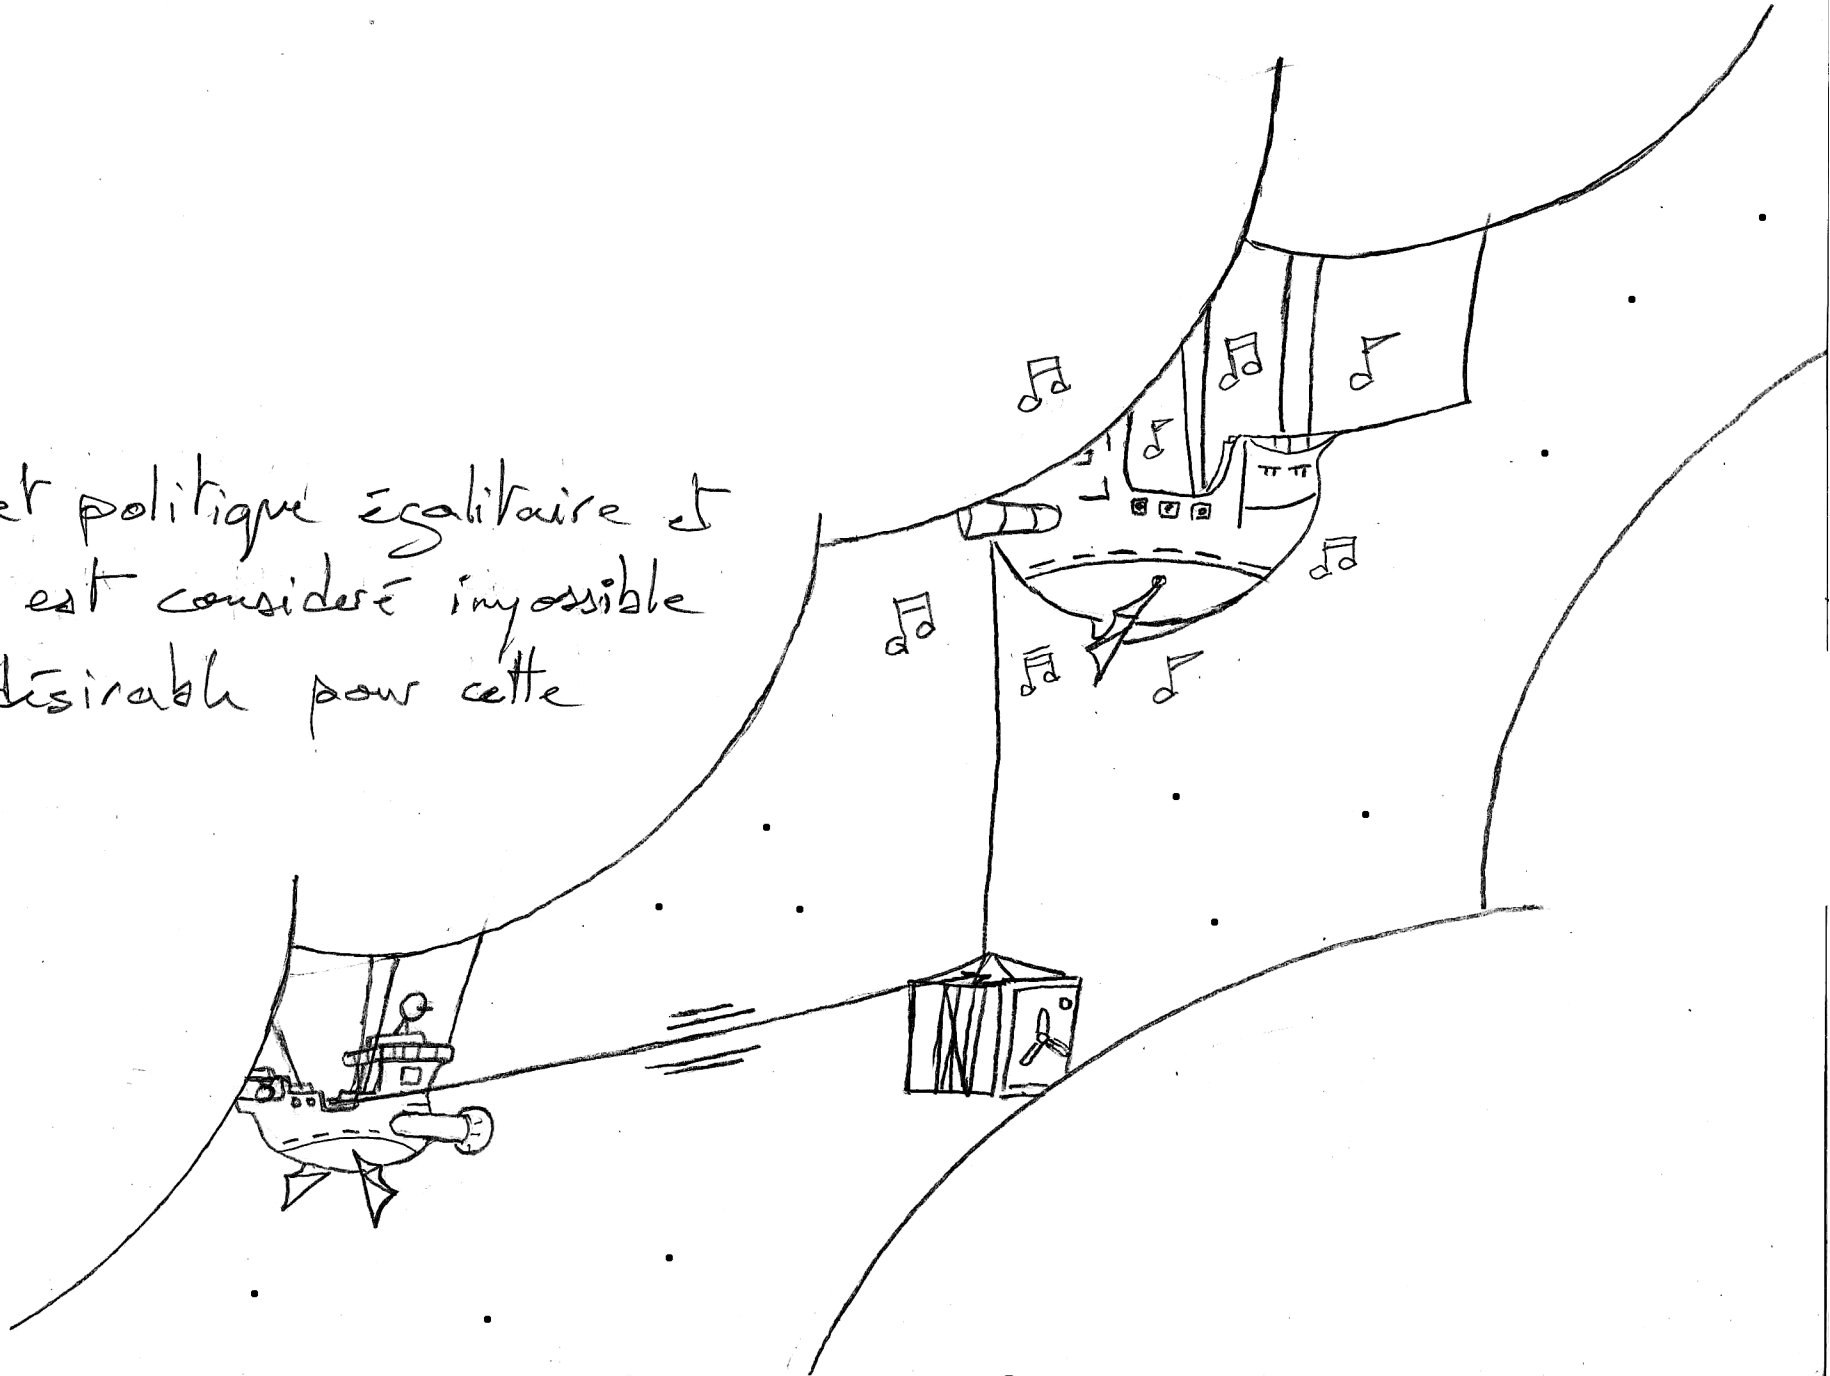 et politique égalitaire et
est consideré impossible
désirable pour cette